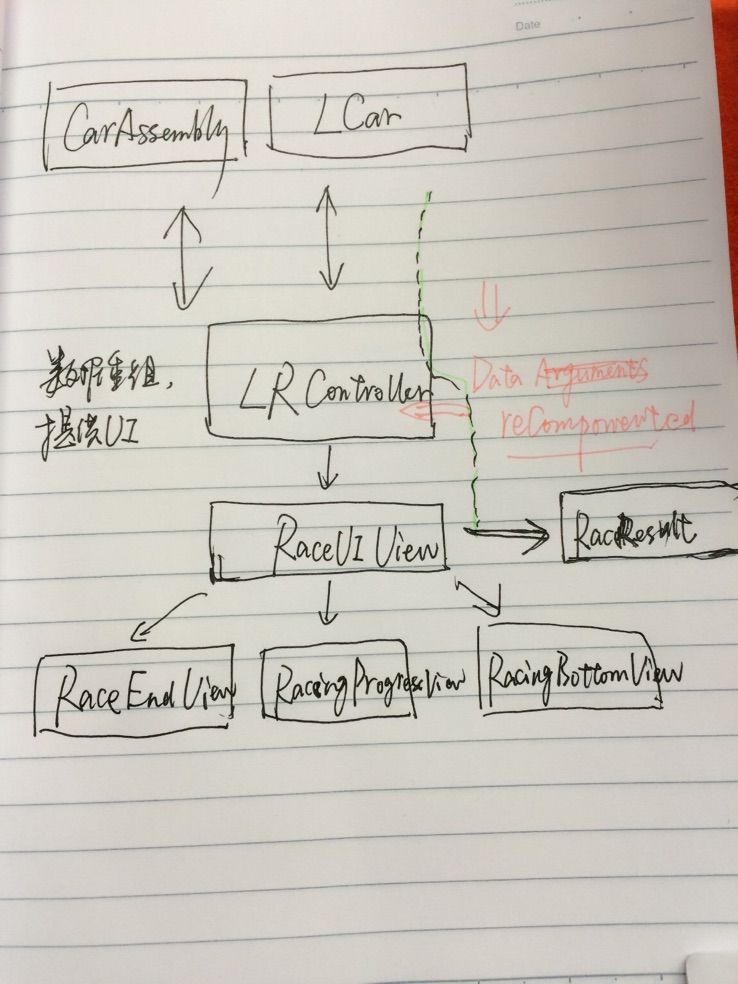 Date
CarAssembly
LCar
数据重组，
提供UI
LR Controller
Data Arguments
reComponented
RaceUI View
RaceResult
RaceEndView
RacingProgressView
RacingBottomView